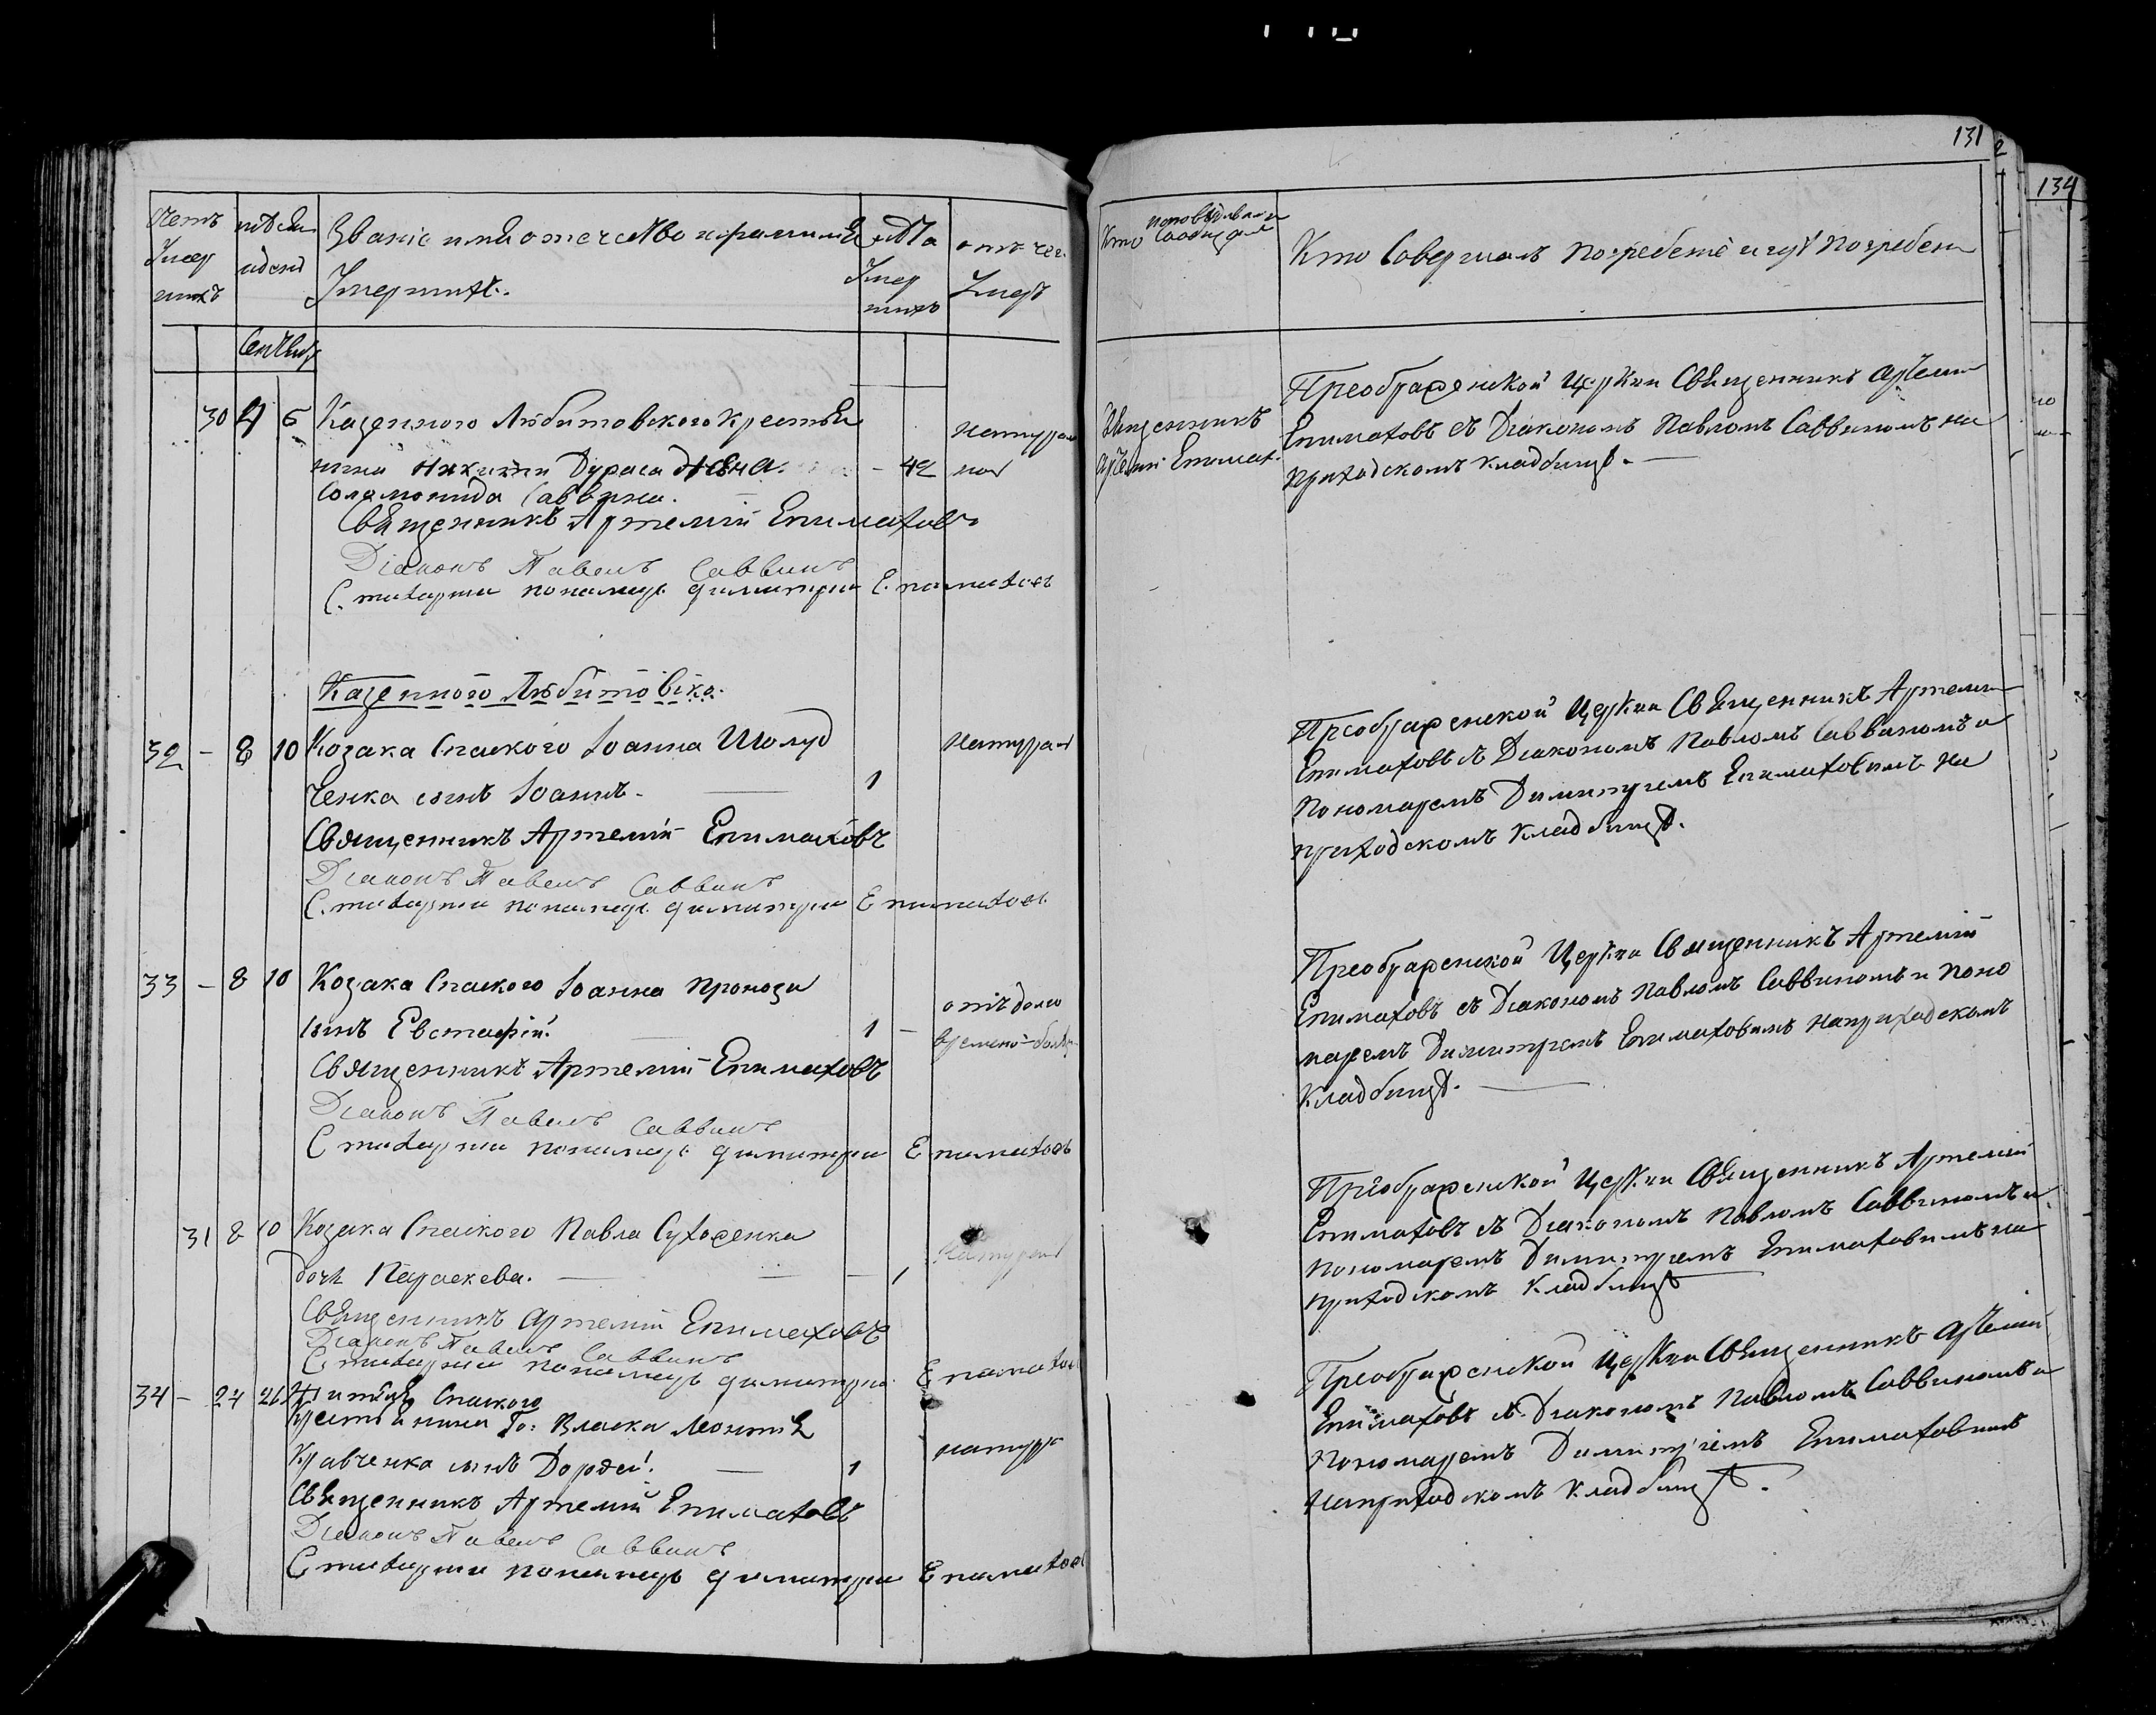 131
134
Счетъ Умер шихъ
мѣсяц и день
Званіе имя отчество и фамилія Умершихъ.
лѣта Умер шихъ
отъ чего Умеръ
Кто исповѣдывал и Сообщалъ
Кто Совершалъ погребеніе и гдѣ погребены
Сентябр
30 4 6 Казенного Любитовского крестья
нина Никити Дураса жена. - 42
Соломонида Саввина.
натурал
ная
Священникъ Артемій Епимаховъ
Діаконъ Павелъ Саввинъ
Стихарни пономарь Димитри Епимаховъ
Священникъ
Артемій Епимах.
Преображенской Церкви Священникъ Артеми
Епимаховъ съ Діакономъ Павломъ Саввиномъ на
приходскомъ кладбищѣ.
Казенного Любитовско.
32 - 8 10 Козака Спаского Іоанна Шолуд
ченка сынъ Іоаннъ. 1
Натурал
Священникъ Артемій Епимаховъ
Діаконъ Павелъ Саввинъ
Стихарни пономарь Димитри Епимаховъ
Преображенской Церкви Священникъ Артеми
Епимаховъ съ Діакономъ Павломъ Саввиномъ и
Пономаремъ Димитріемъ Епимаховимъ на
приходскомъ кладбищѣ.
33 - 8 10 Козака Спаского Іоанна Проноза
сынъ Евстафій. 1 -
отъ долго
времено-
Священникъ Артемій Епимаховъ
Діаконъ Павелъ Саввинъ
Стихарни пономарь Димитри Епимаховъ
Преображенской Церкви Священникъ Артемій
Епимаховъ съ Діакономъ Павломъ Саввиномъ и Поно
маремъ Димитріемъ Епимаховимъ на приходскомъ
Кладбищѣ.
31 8 10 Козака Спаского Павла Сухоженка
дочь Параскева. - 1
Натурал
Священникъ Артемій Епимаховъ
Діаконъ Павелъ Саввинъ
Стихарни пономарь Димитри Епимаховъ
Преображенской Церкви Священникъ Артемій
Епимаховъ съ Діакономъ Павломъ Саввиномъ и
Пономаремъ Димитріемъ Епимаховимъ на
приходскомъ Кладбищѣ
34 - 24 26 Спаского
крестьянина Го: Власка Леонтія
Кравченка сынъ 1
натур
Священникъ Артемій Епимаховъ
Діаконъ Павелъ Саввинъ
Стихарни пономарь Димитри Епимаховъ
Преображенской Церкви Священникъ Артемій
Епимаховъ съ Діакономъ Павломъ Саввиномъ и
Пономаремъ Димитріемъ Епимаховимъ
на приходскомъ кладбищѣ.